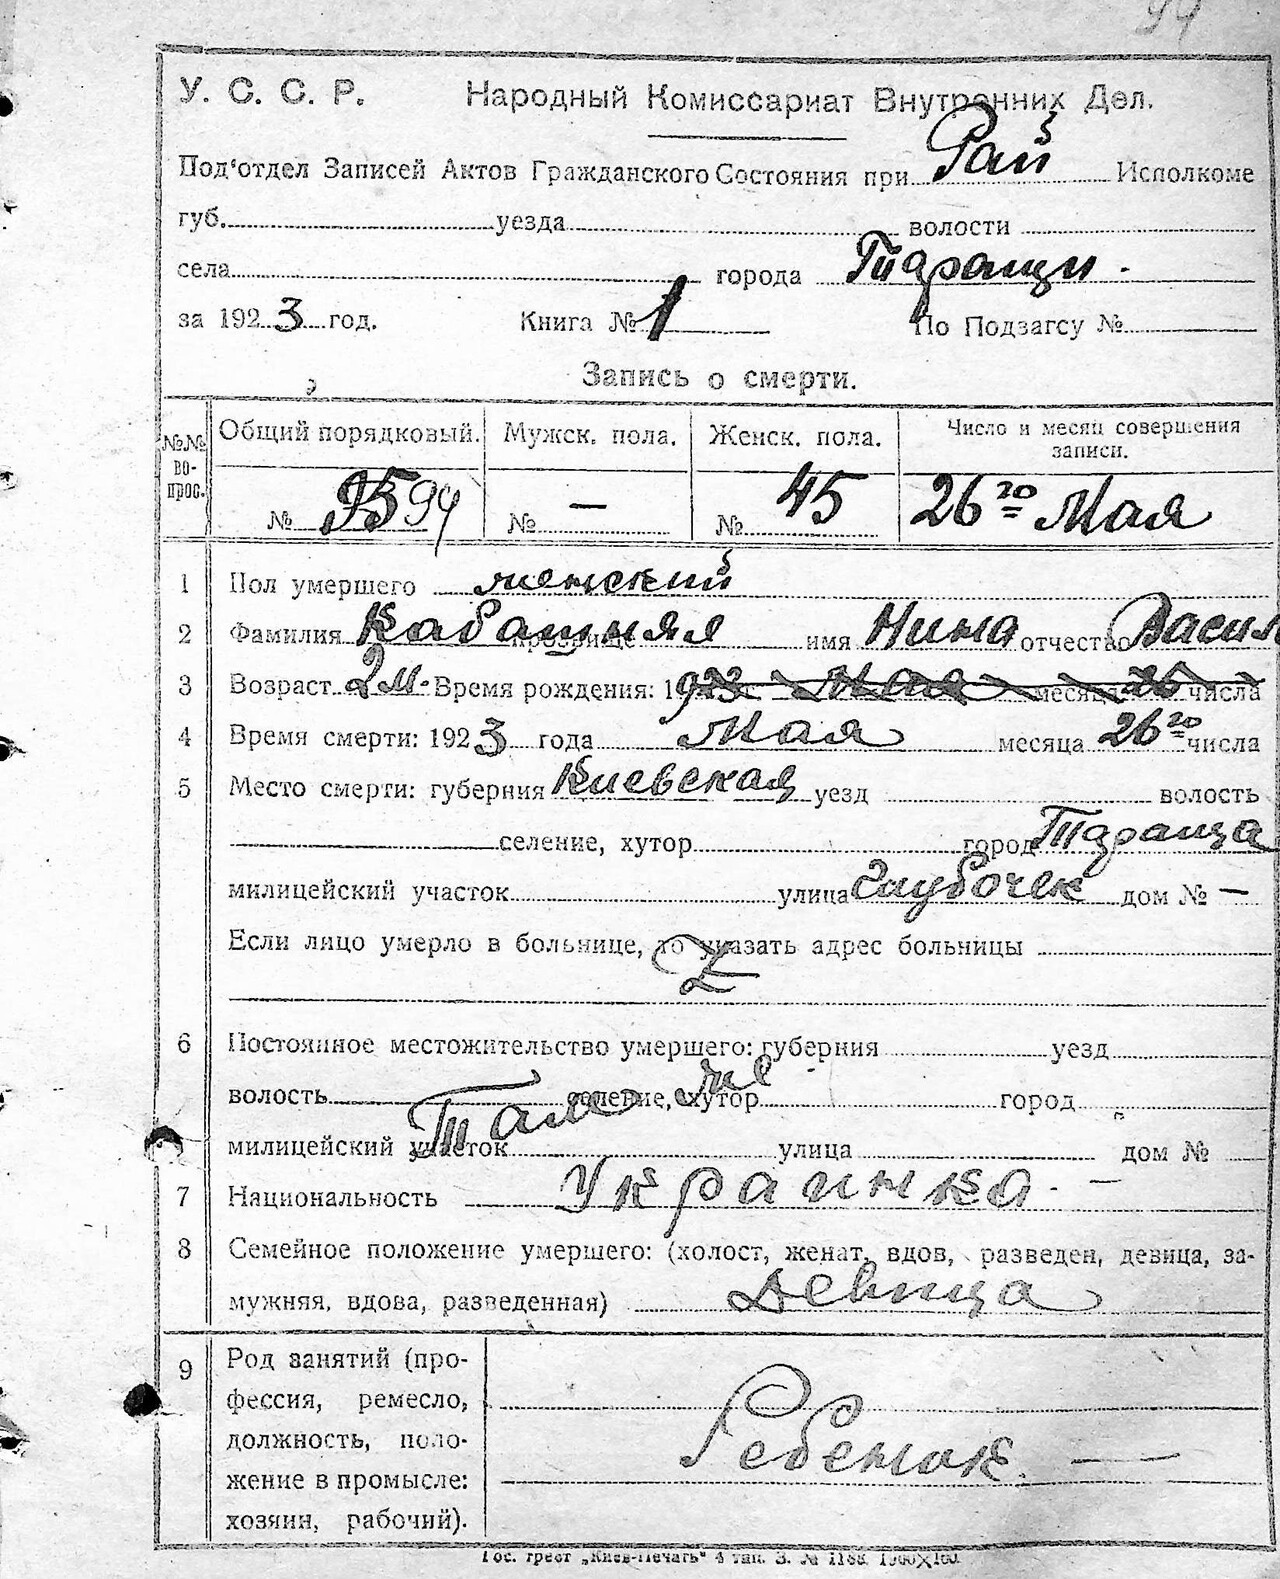 94
У. С. С. Р. Народный Комиссариат Внутренних Дел.
Под'отдел Записей Актов Гражданского Состояния при Рай Исполкоме
губ. уезда волости
села города Таращи.
за 1923 год. Книга № 1 По Подзагсу №
Запись о смерти.
№№ вопрос. Общий порядковый. Мужск. пола. Женск. пола. Число и месяц совершения записи.
№ 95 94 № — № 45 26го Мая
1 Пол умершего женский
2 Фамилия Кабашняя прозвище имя Нина отчество Васил
3 Возраст 2 м. Время рождения: 1923 г. Мая месяца 26 числа
4 Время смерти: 1923 года Мая месяца 26го числа
5 Место смерти: губерния Киевская уезд волость
селение, хутор город Тараща
милицейский участок улица Глубочек дом № —
Если лицо умерло в больнице, то указать адрес больницы
6 Постоянное местожительство умершего: губерния уезд
волость селение, хутор город
Там же
милицейский участок улица дом №
7 Национальность Украинка. —
8 Семейное положение умершего: (холост, женат, вдов, разведен, девица, за-
мужняя, вдова, разведенная) Девица
9 Род занятий (про-
фессия, ремесло,
должность, поло-
жение в промысле:
хозяин, рабочий).
Ребенок. —
Гос. трест „Киев-Печать" 4 тип. З. № 1188. 1000×100.